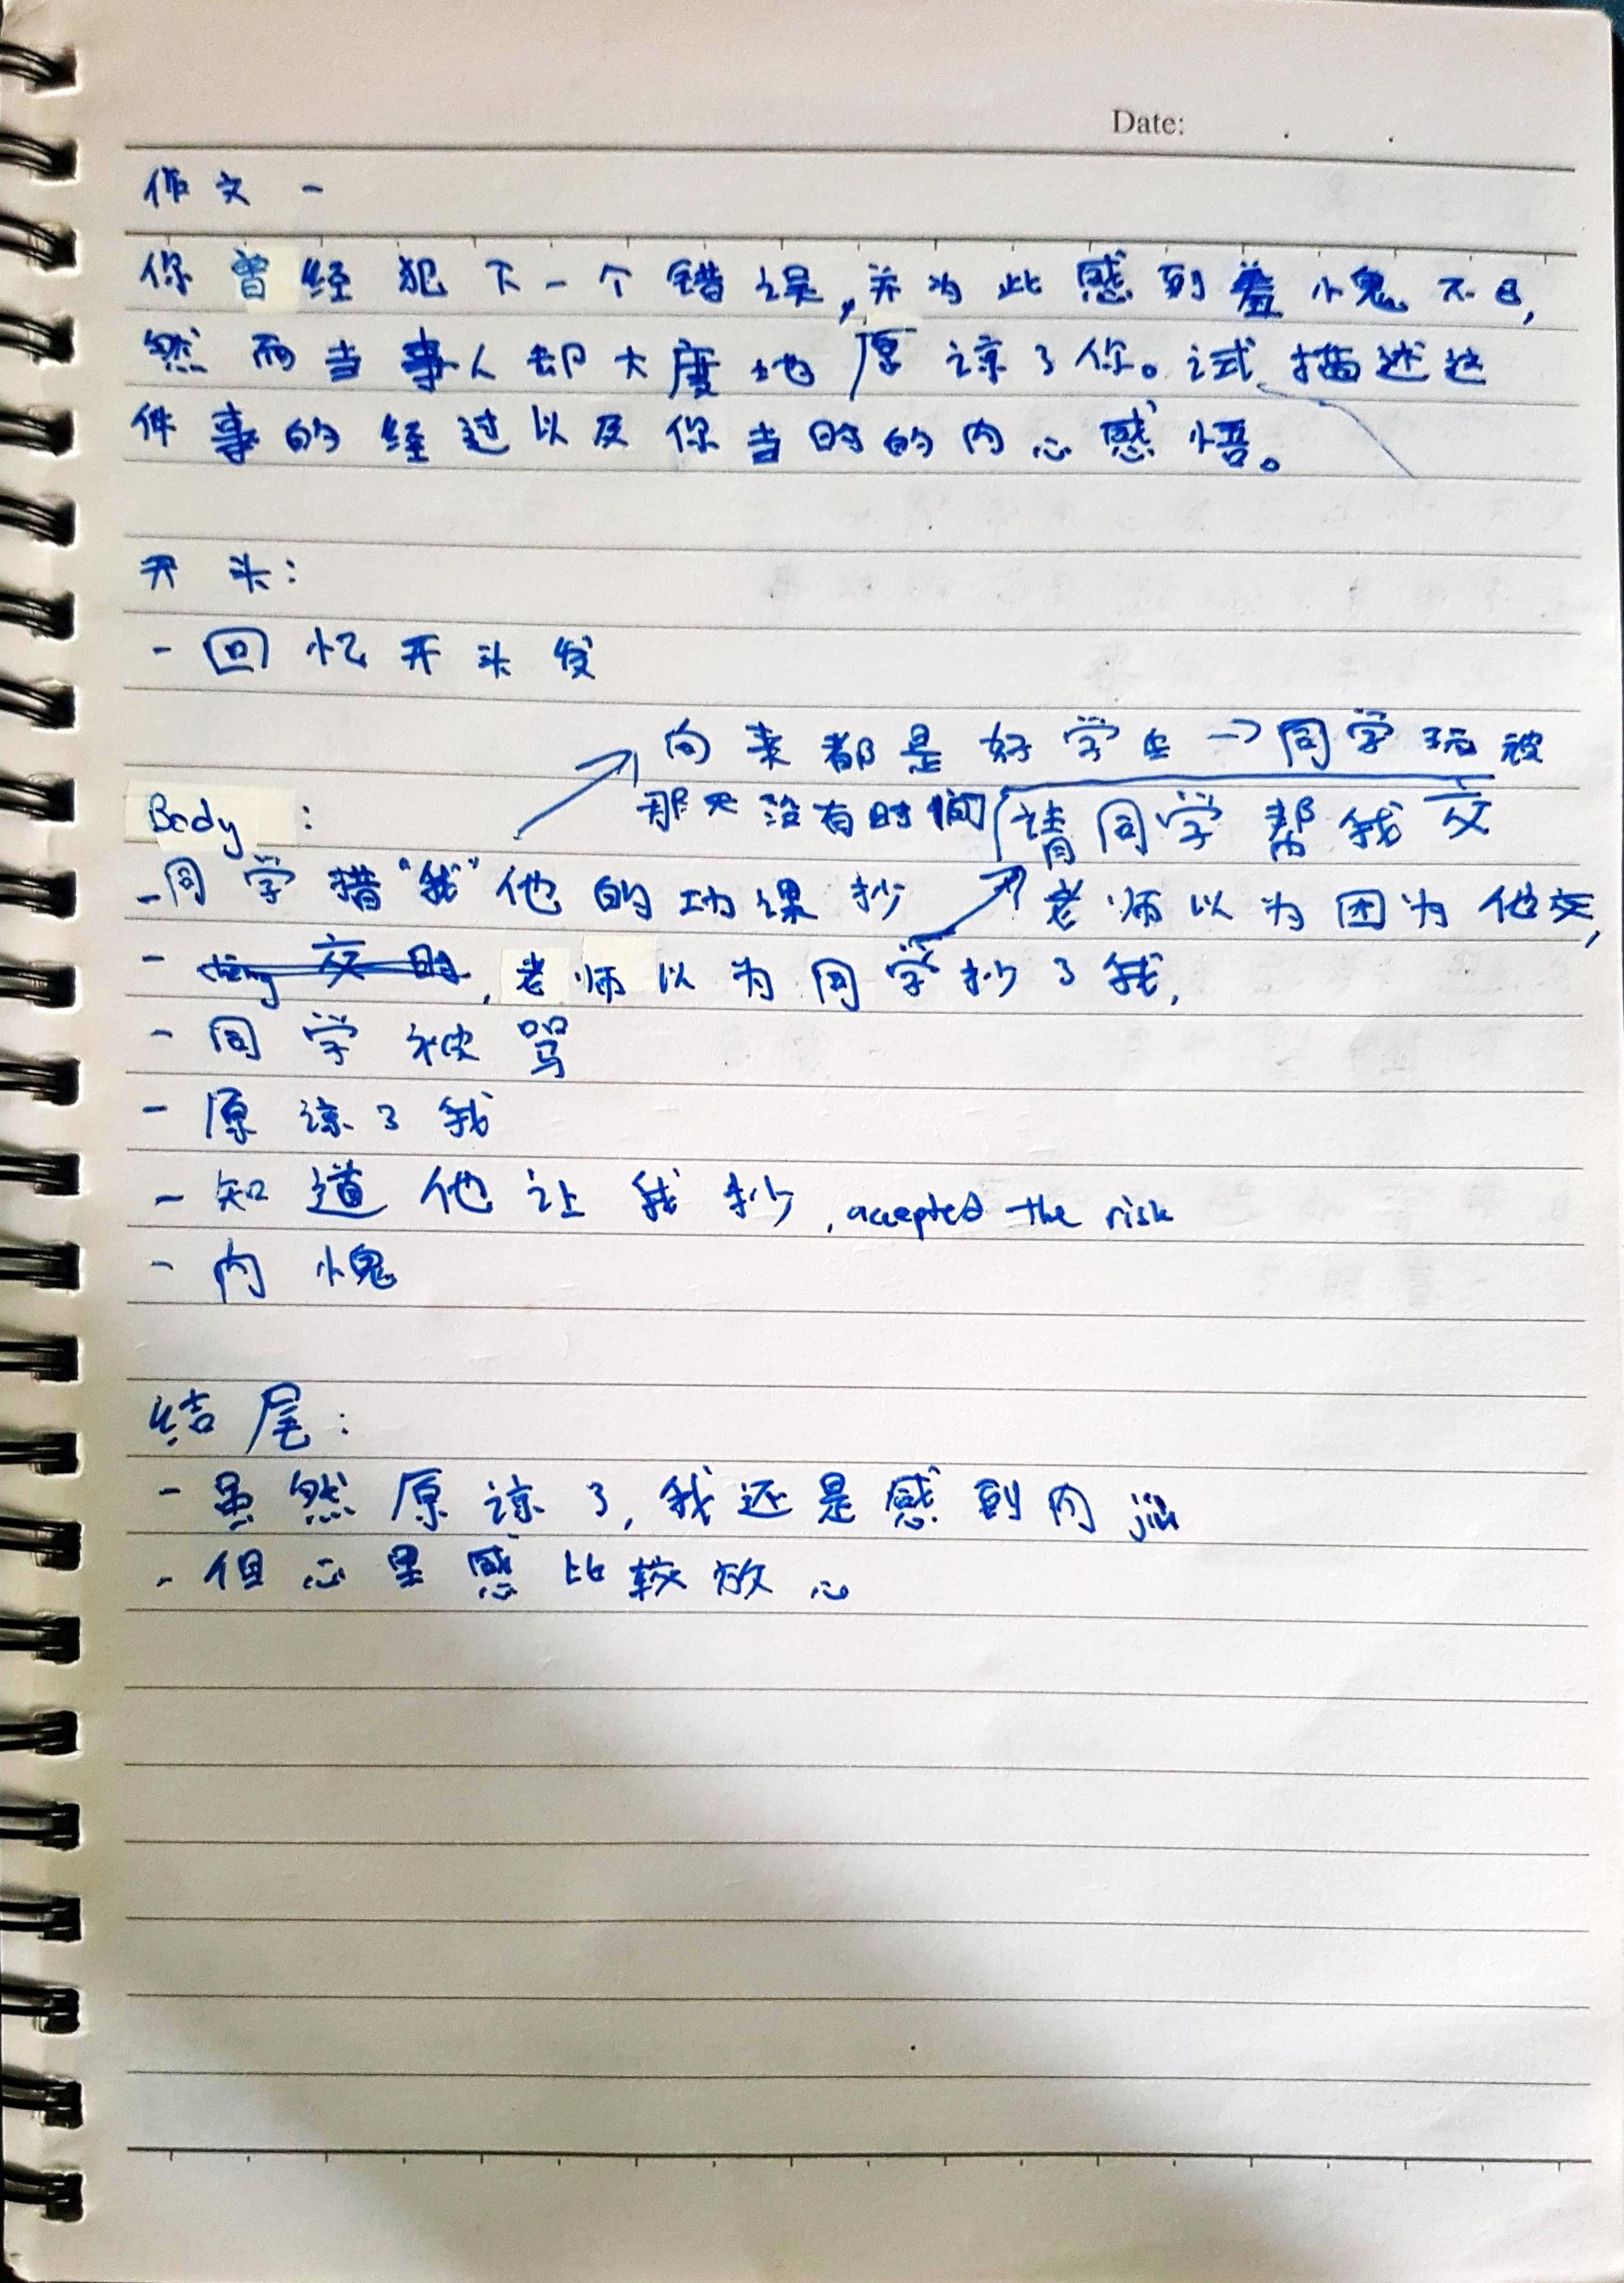 Date:
作文一
你曾经犯下一个错误，并为此感到羞愧不已，
然而当事人却大度地原谅了你。试描述这
件事的经过以及你当时的内心感悟。
开头：
- 回忆开头发
向来都是好学生 → 同学 被
那天没有时间 请同学帮我交
Body :
- 同学 "我" 他的功课抄
老师以为因为他交，
- 交时，老师以为同学抄了我，
- 同学被骂
- 原谅了我
- 知道他让我抄，accepted the risk
- 内愧
结尾：
- 虽然原谅了，我还是感到内 jiu
- 但心里感比较放心